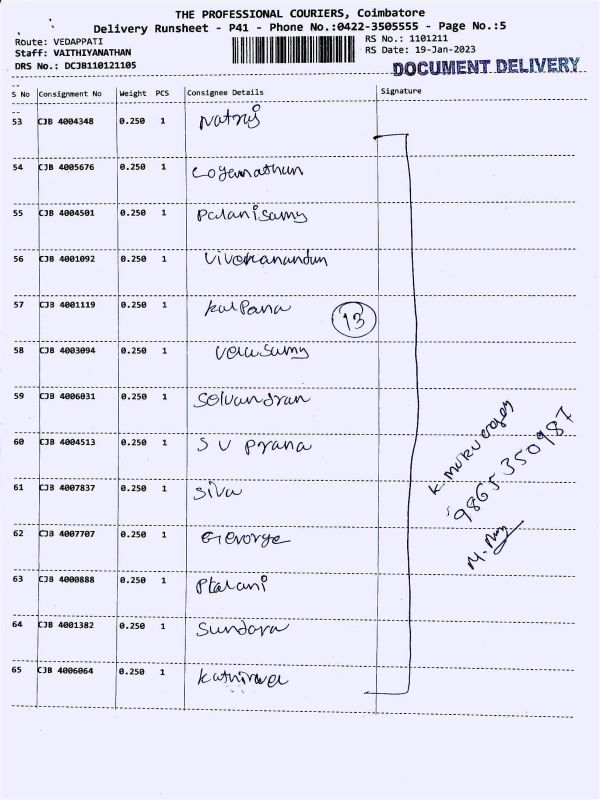 THE PROFESSIONAL COURIERS, Coimbatore
Delivery Runsheet - P41 - Phone No.:0422-3505555 - Page No.:5
Route: VEDAPPATI
Staff: VAITHIYANATHAN
DRS No.: DCJB110121105
RS No.: 1101211
RS Date: 19-Jan-2023
DOCUMENT DELIVERY
S No Consignment No Weight PCS Consignee Details Signature
53 CJB 4004348 0.250 1 Natraj
54 CJB 4005676 0.250 1 Logamathun
55 CJB 4004501 0.250 1 Palanisamy
56 CJB 4001092 0.250 1 Vivekanandun
57 CJB 4001119 0.250 1 Kalpana
13
58 CJB 4003094 0.250 1 Velusamy
59 CJB 4006031 0.250 1 Selvandran
60 CJB 4004513 0.250 1 S V Prana
61 CJB 4007837 0.250 1 Siva
62 CJB 4007707 0.250 1 George
63 CJB 4000888 0.250 1 Ptalani
64 CJB 4001382 0.250 1 Sundara
65 CJB 4006064 0.250 1
K. Murugesan
9865350987